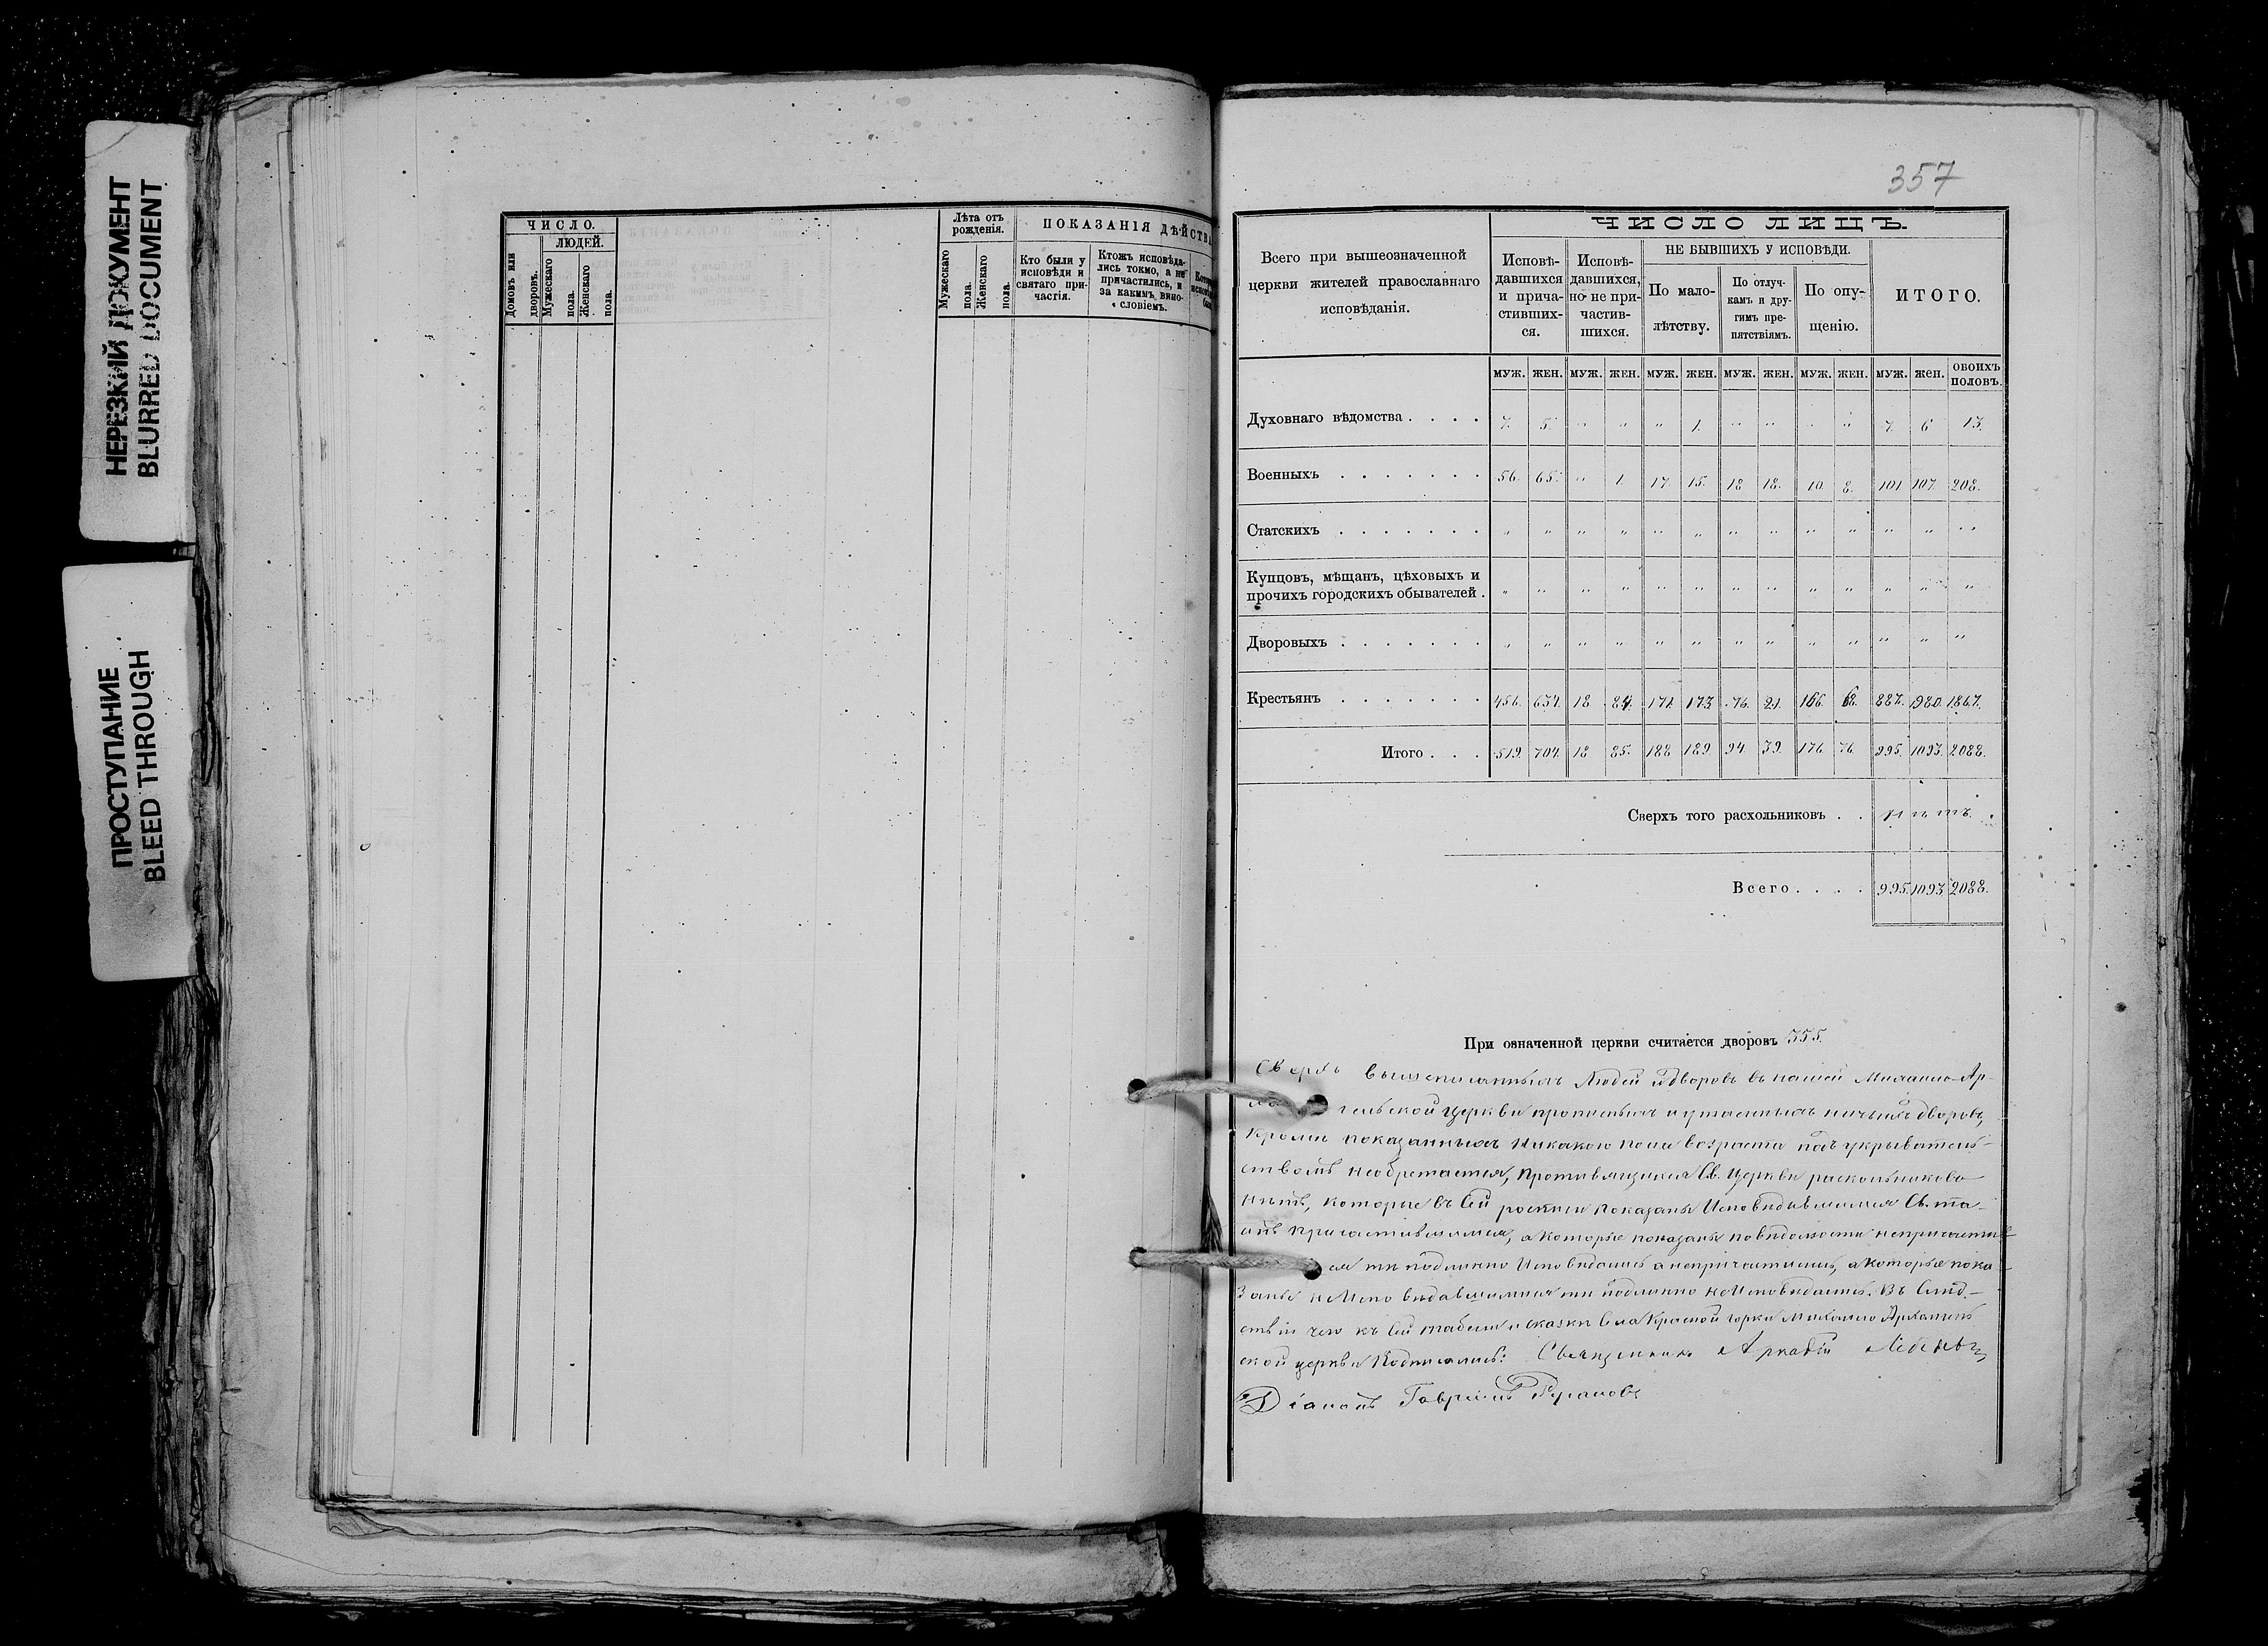 НЕРЕЗКИЙ ДОКУМЕНТ
BLURRED DOCUMENT
ПРОСТУПАНИЕ
BLEED THROUGH
ЧИСЛО.
ЛЮДЕЙ.
Домовъ или дворовъ.
Мужескаго пола.
Женскаго пола.
Лѣта отъ рожденія.
Мужескаго пола.
Женскаго пола.
ПОКАЗАНІЯ ДѢЙСТВ
Кто были у исповѣди и святаго причастія.
Ктожъ исповѣдались токмо, а не причастились, и за какимъ винословіемъ.
357
Всего при вышеозначенной
церкви жителей православнаго
исповѣданія.
ЧИСЛО ЛИЦЪ.
Исповѣдавшихся и причастившихся.
Исповѣдавшихся, но не причастившихся.
НЕ БЫВШИХЪ У ИСПОВѢДИ.
По малолѣтству.
По отлучкамъ и другимъ препятствіямъ.
По опущенію.
ИТОГО.
МУЖ. ЖЕН. МУЖ. ЖЕН. МУЖ. ЖЕН. МУЖ. ЖЕН. МУЖ. ЖЕН. МУЖ. ЖЕН. ОБОИХЪ ПОЛОВЪ.
Духовнаго вѣдомства . . . . 7. 5. „ „ „ 1. „ „ „ „ 7. 6 13.
Военныхъ . . . . . . . 56. 65. „ 1. 17. 15. 18 18. 10. 8. 101. 107. 208.
Статскихъ . . . . . . . „ „ „ „ „ „ „ „ „ „ „ „ „
Купцовъ, мѣщанъ, цѣховыхъ и
прочихъ городскихъ обывателей . „ „ „ „ „ „ „ „ „ „ „ „ „
Дворовыхъ . . . . . . . „ „ „ „ „ „ „ „ „ „ „ „ „
Крестьянъ . . . . . . . 456. 634. 18 84. 171. 173 76. 21. 166. 68. 887. 980. 1867.
Итого . . . 519. 704. 18 85. 188 189. 94. 39. 176. 76. 995. 1093. 2088.
Сверхъ того расхольниковъ . . Нѣтъ.
Всего . . . . 995. 1093. 2088.
При означенной церкви считается дворовъ 355.
Сверхъ вышеписанныхъ людей и дворовъ въ нашей Михаило-Ар-
гельской церкви прописныхъ и утаенныхъ ничьихъ дворовъ,
кромѣ показанныхъ никакого пола возраста подъ укрыватель-
ствомъ необретается, противящихся Св. Церкви раскольниковъ
нѣтъ, которые въ сей росписи показаны исповѣдавшимися Св. та-
инъ причастившимися, а которые показаны по вѣдомости непричастив
ся тѣ подлинно исповѣдались а непричастились, а которые пока
заны неисповѣдавшимися тѣ подлинно неисповѣдались. Въ слѣд-
ствіи чего къ сей табели и сказки села Красной горки Михаило Архангель
ской церкви подписались: Священникъ Аркадій
Діаконъ Гавріилъ